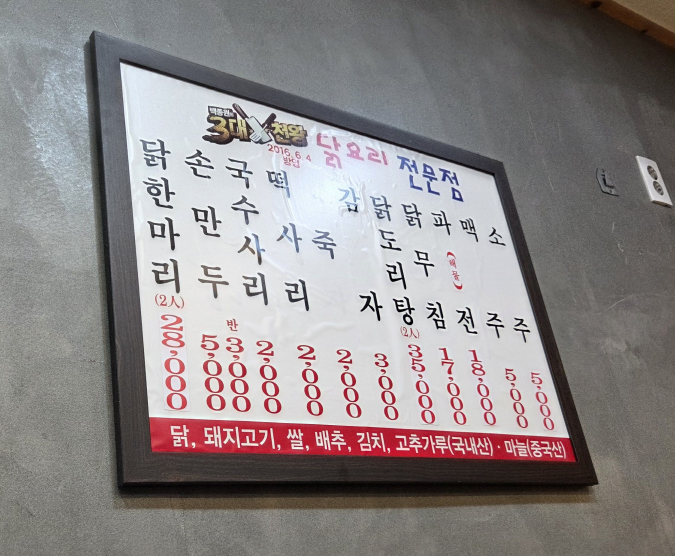 백종원의
3대천왕
2016.6.4
방영
닭요리 전문점
닭한마리 (2人) 28,000
손만두 5,000
반 3,000
국수사리 2,000
떡사리 2,000
죽 2,000
감자 3,000
닭도리탕 (2人) 35,000
닭무침 17,000
파전 (해물) 18,000
맥주 5,000
소주 5,000
닭, 돼지고기, 쌀, 배추, 김치, 고추가루(국내산)·마늘(중국산)